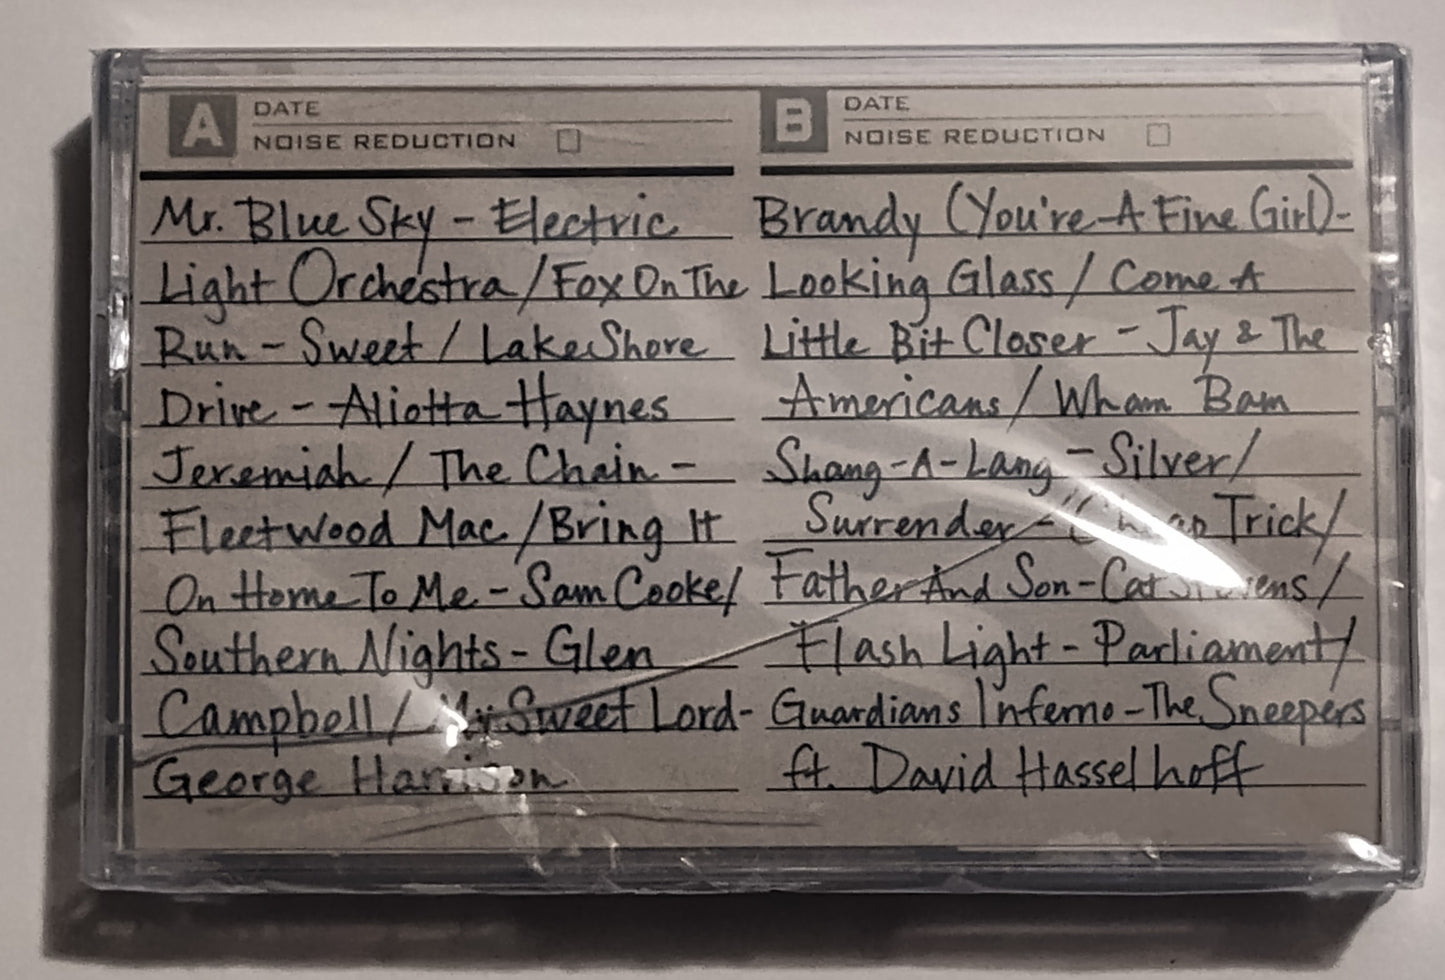 A
DATE
NOISE REDUCTION
Mr. Blue Sky - Electric
Light Orchestra / Fox On The
Run - Sweet / Lake Shore
Drive - Aliotta Haynes
Jeremiah / The Chain -
Fleetwood Mac / Bring It
On Home To Me - Sam Cooke /
Southern Nights - Glen
Campbell / My Sweet Lord -
George Harrison
B
DATE
NOISE REDUCTION
Brandy (You're A Fine Girl) -
Looking Glass / Come A
Little Bit Closer - Jay & The
Americans / Wham Bam
Shang-A-Lang - Silver /
Surrender - Cheap Trick /
Father And Son - Cat Stevens /
Flash Light - Parliament /
Guardians Inferno - The Sneepers
ft. David Hasselhoff